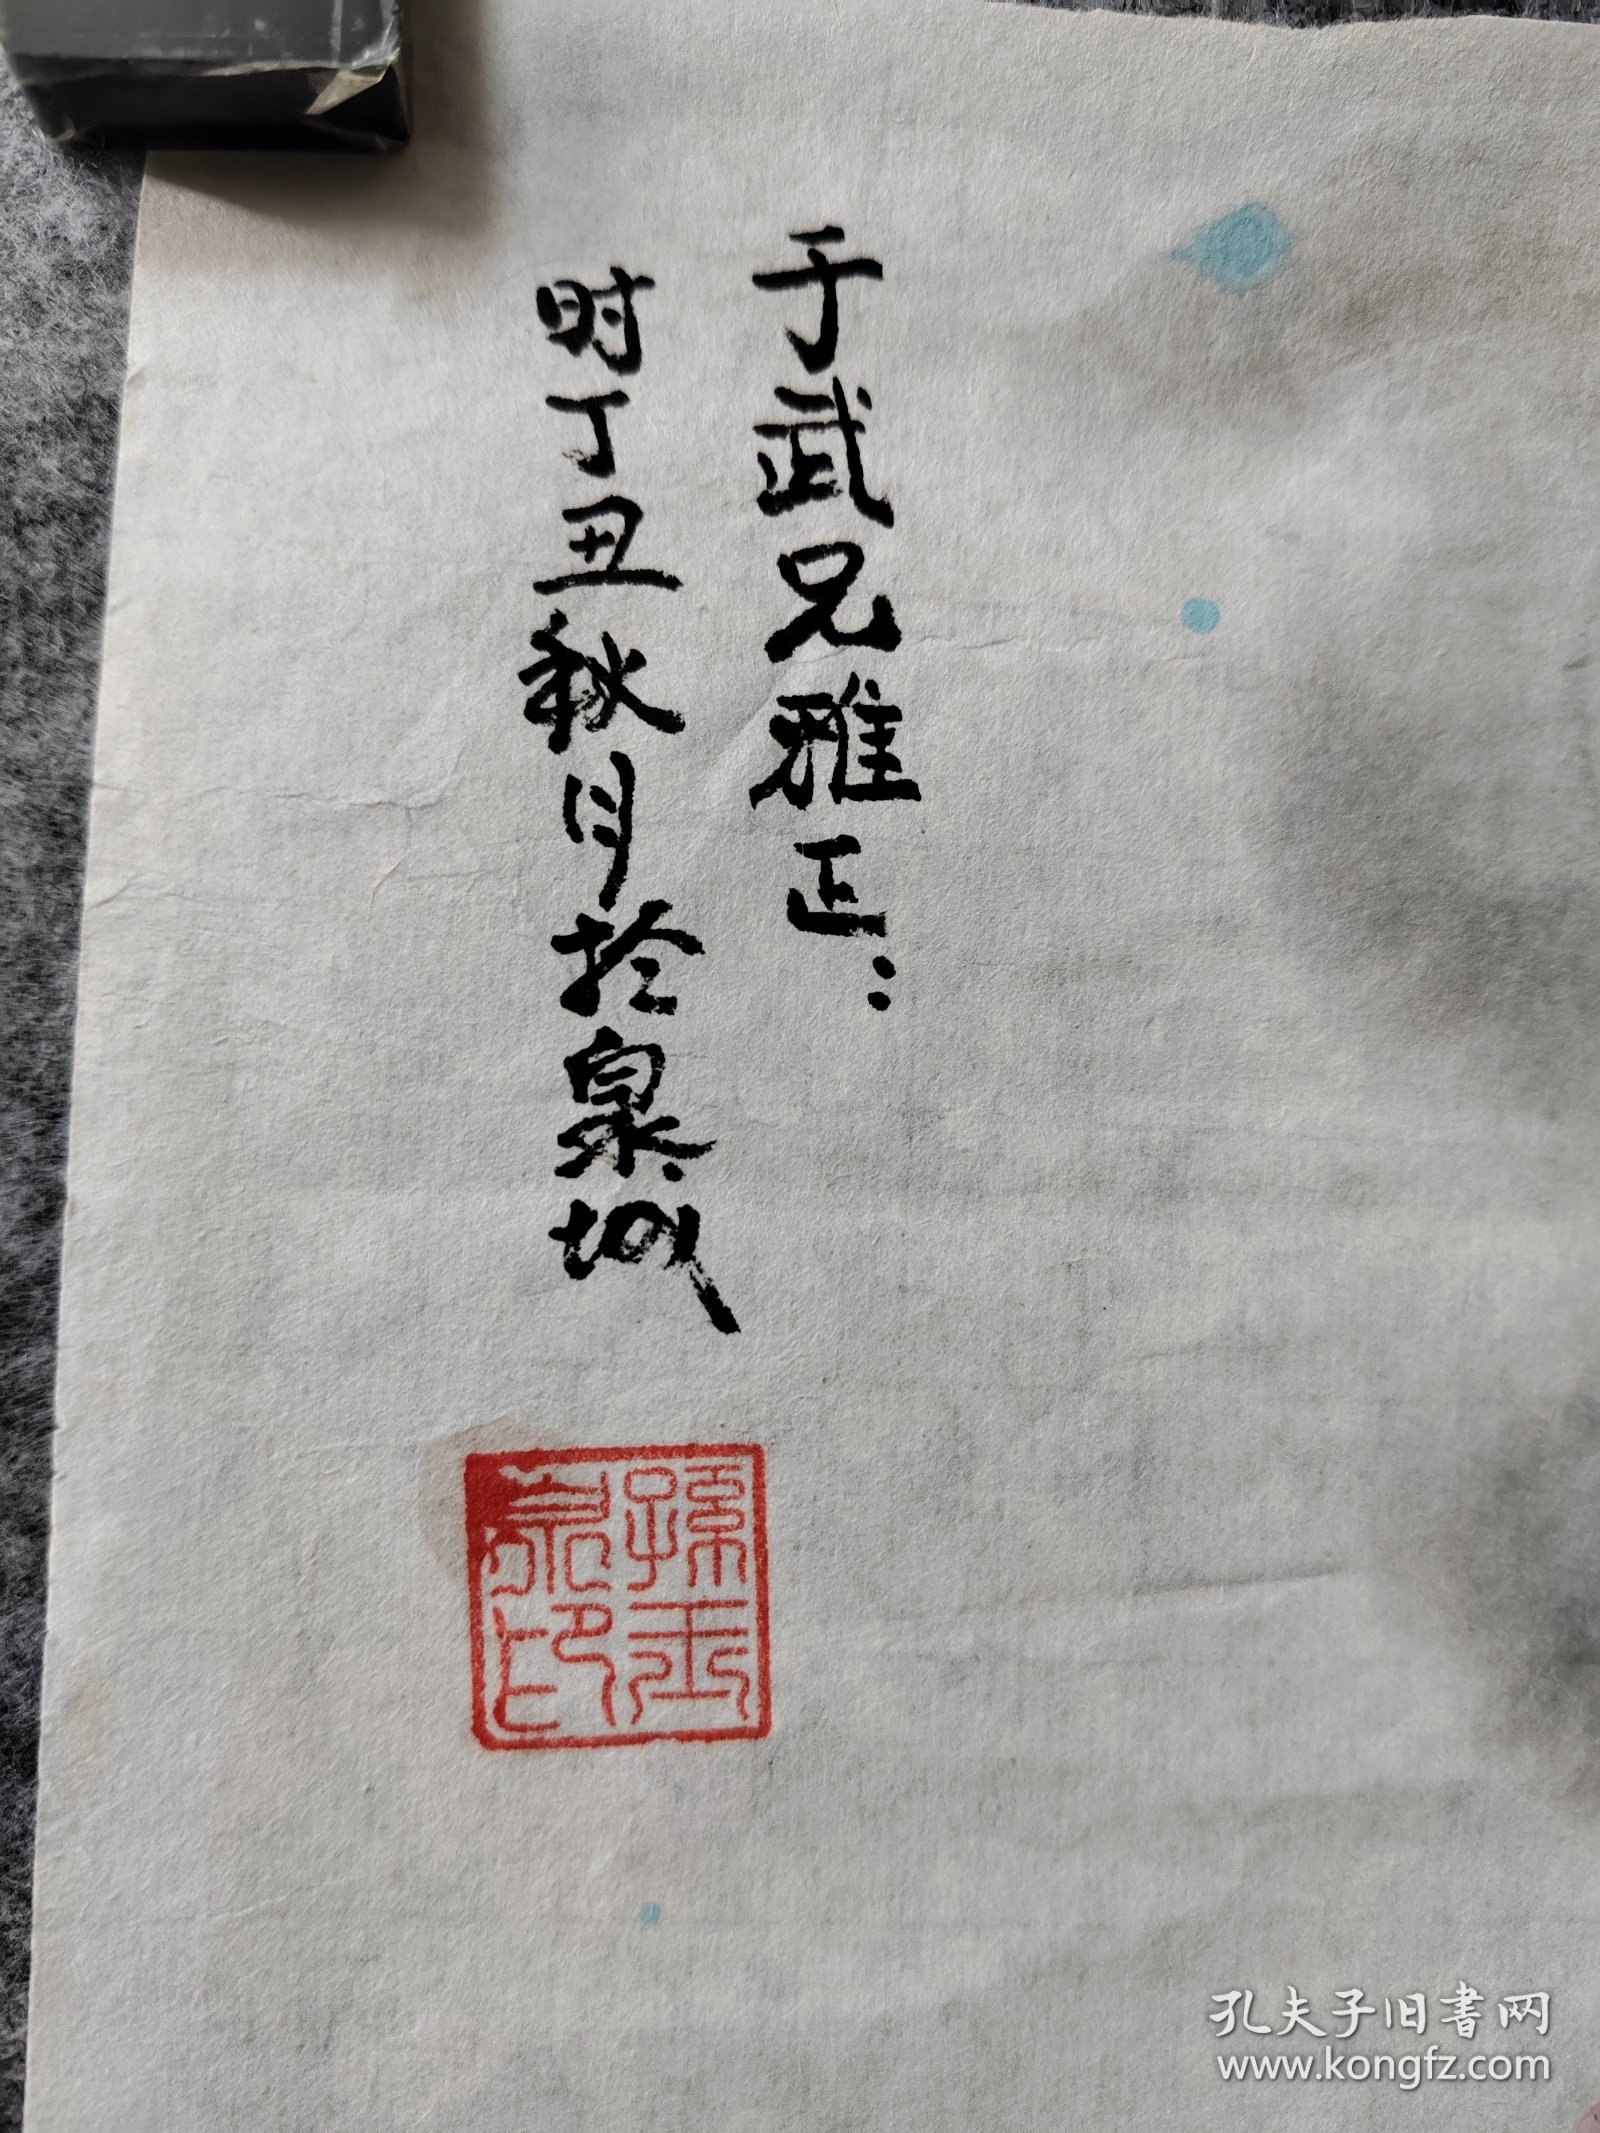 于武兄雅正：
时丁丑秋月於泉城
孫玉泉印
孔夫子旧书网
www.kongfz.com